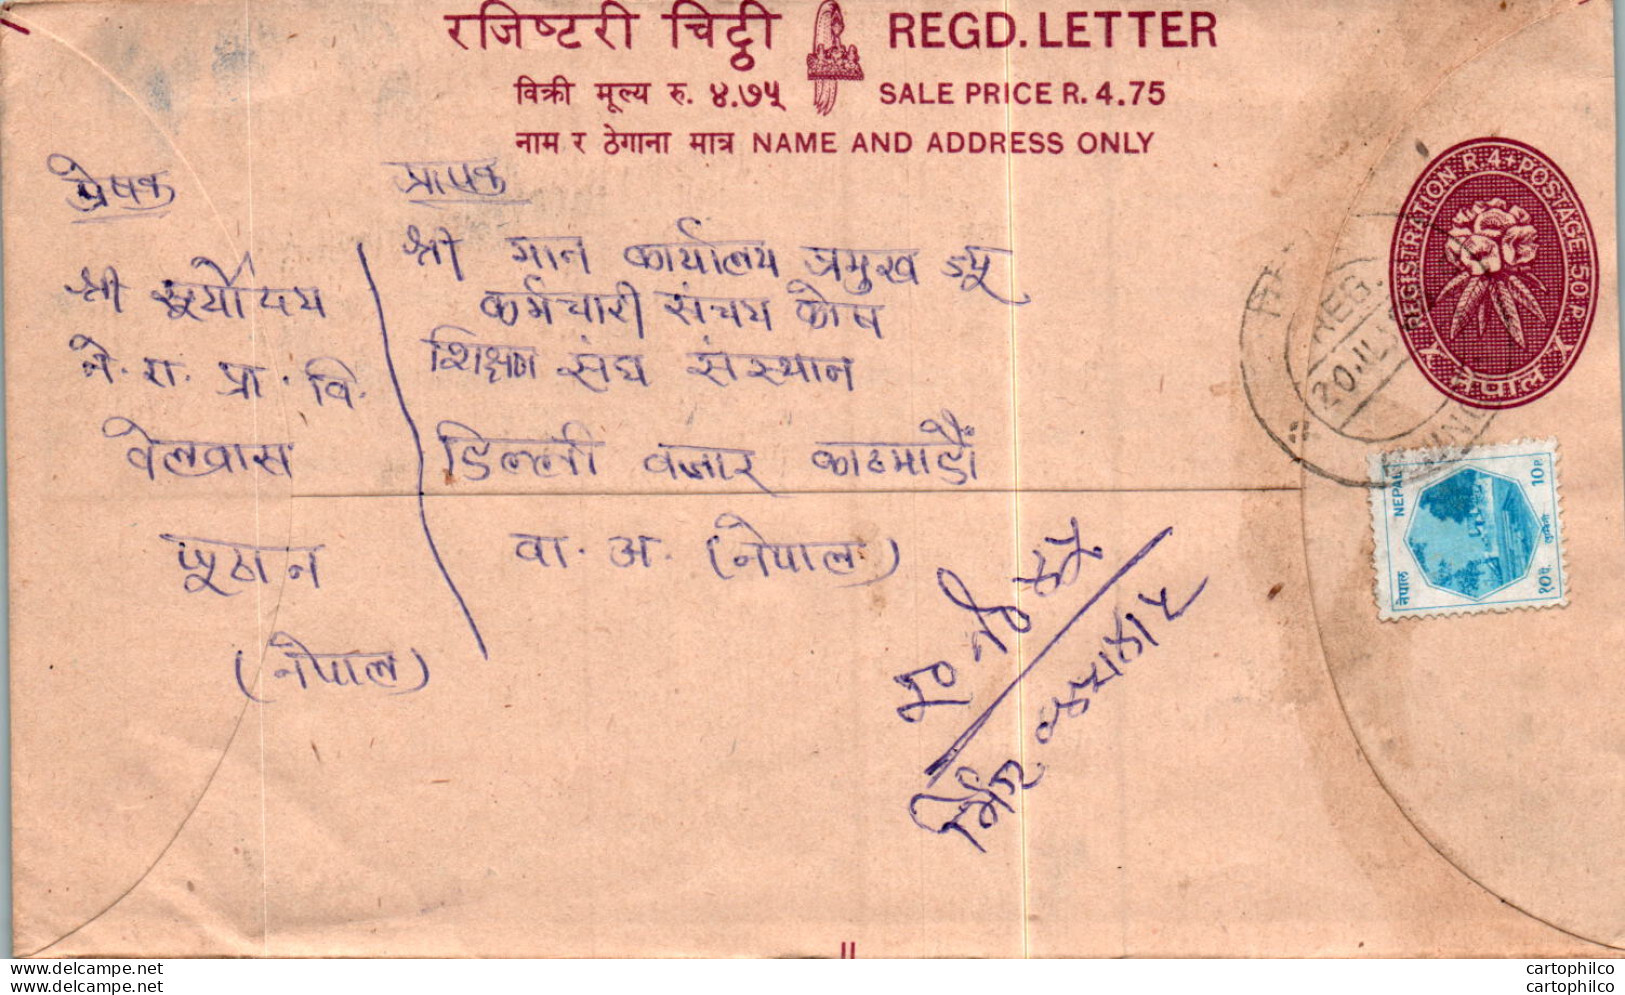 रजिष्टरी चिट्ठी REGD. LETTER
विक्री मूल्य रु. ४.७५ SALE PRICE R. 4.75
नाम र ठेगाना मात्र NAME AND ADDRESS ONLY
प्रेषक
श्री सूर्योदय
ने. रा. प्रा. वि.
वेलवास
प्यूठान
(नेपाल)
प्रापक
श्री मान कार्यालय प्रमुख ज्यू
कर्मचारी संचय कोष
शिक्षण संघ संस्थान
डिल्ली बजार काठमाडौं
वा. अ. (नेपाल)
REGISTRATION. R. 4 + POSTAGE 50 P
नेपाल
REG.
20.11.
NEPAL 10 P.
नेपाल १० पै.
लुम्बिनी
cartophilco
cartophilco
www.delcampe.net
www.delcampe.net